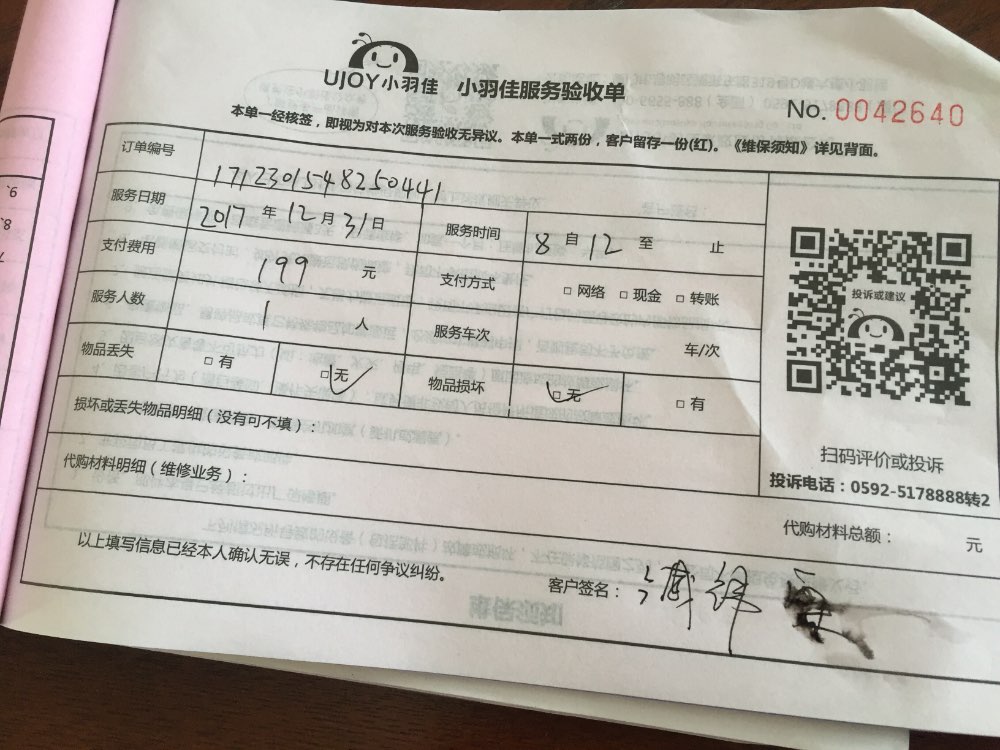 UJOY小羽佳 小羽佳服务验收单
No. 0042640
本单一经核签，即视为对本次服务验收无异议。本单一式两份，客户留存一份(红)。《维保须知》详见背面。
订单编号 1712301548250441
服务日期 2017 年 12 月 31 日 服务时间 8 自 12 至 止
支付费用 199 元 支付方式 □ 网络 □ 现金 □ 转账
服务人数 1 人 服务车次 车/次
物品丢失 □ 有 □ 无 物品损坏 □ 无 □ 有
损坏或丢失物品明细（没有可不填）：
代购材料明细（维修业务）：
投诉或建议
扫码评价或投诉
投诉电话：0592-5178888转2
代购材料总额： 元
以上填写信息已经本人确认无误，不存在任何争议纠纷。
客户签名：